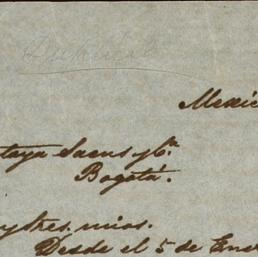 Mexic
taya Saenz y Ca.
Bogotá.
y Sres. mios.
Desde el 5 de Ener